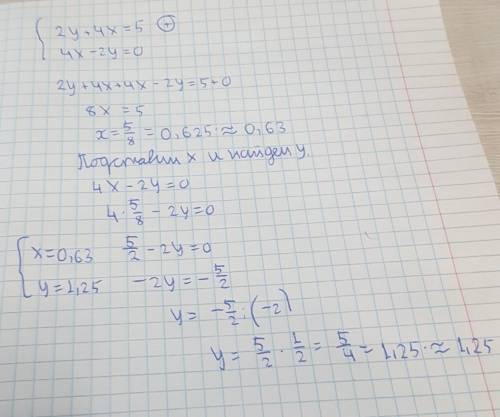 { 2y+4x=5 (+)
4x-2y=0
2y+4x+4x-2y=5+0
8x=5
x=5/8=0,625≈0,63
Подставим x и найдем y.
4x-2y=0
4·5/8-2y=0
{ x=0,63 5/2-2y=0
y=1,25 -2y=-5/2
y=-5/2:(-2)
y=5/2·1/2=5/4=1,25≈1,25